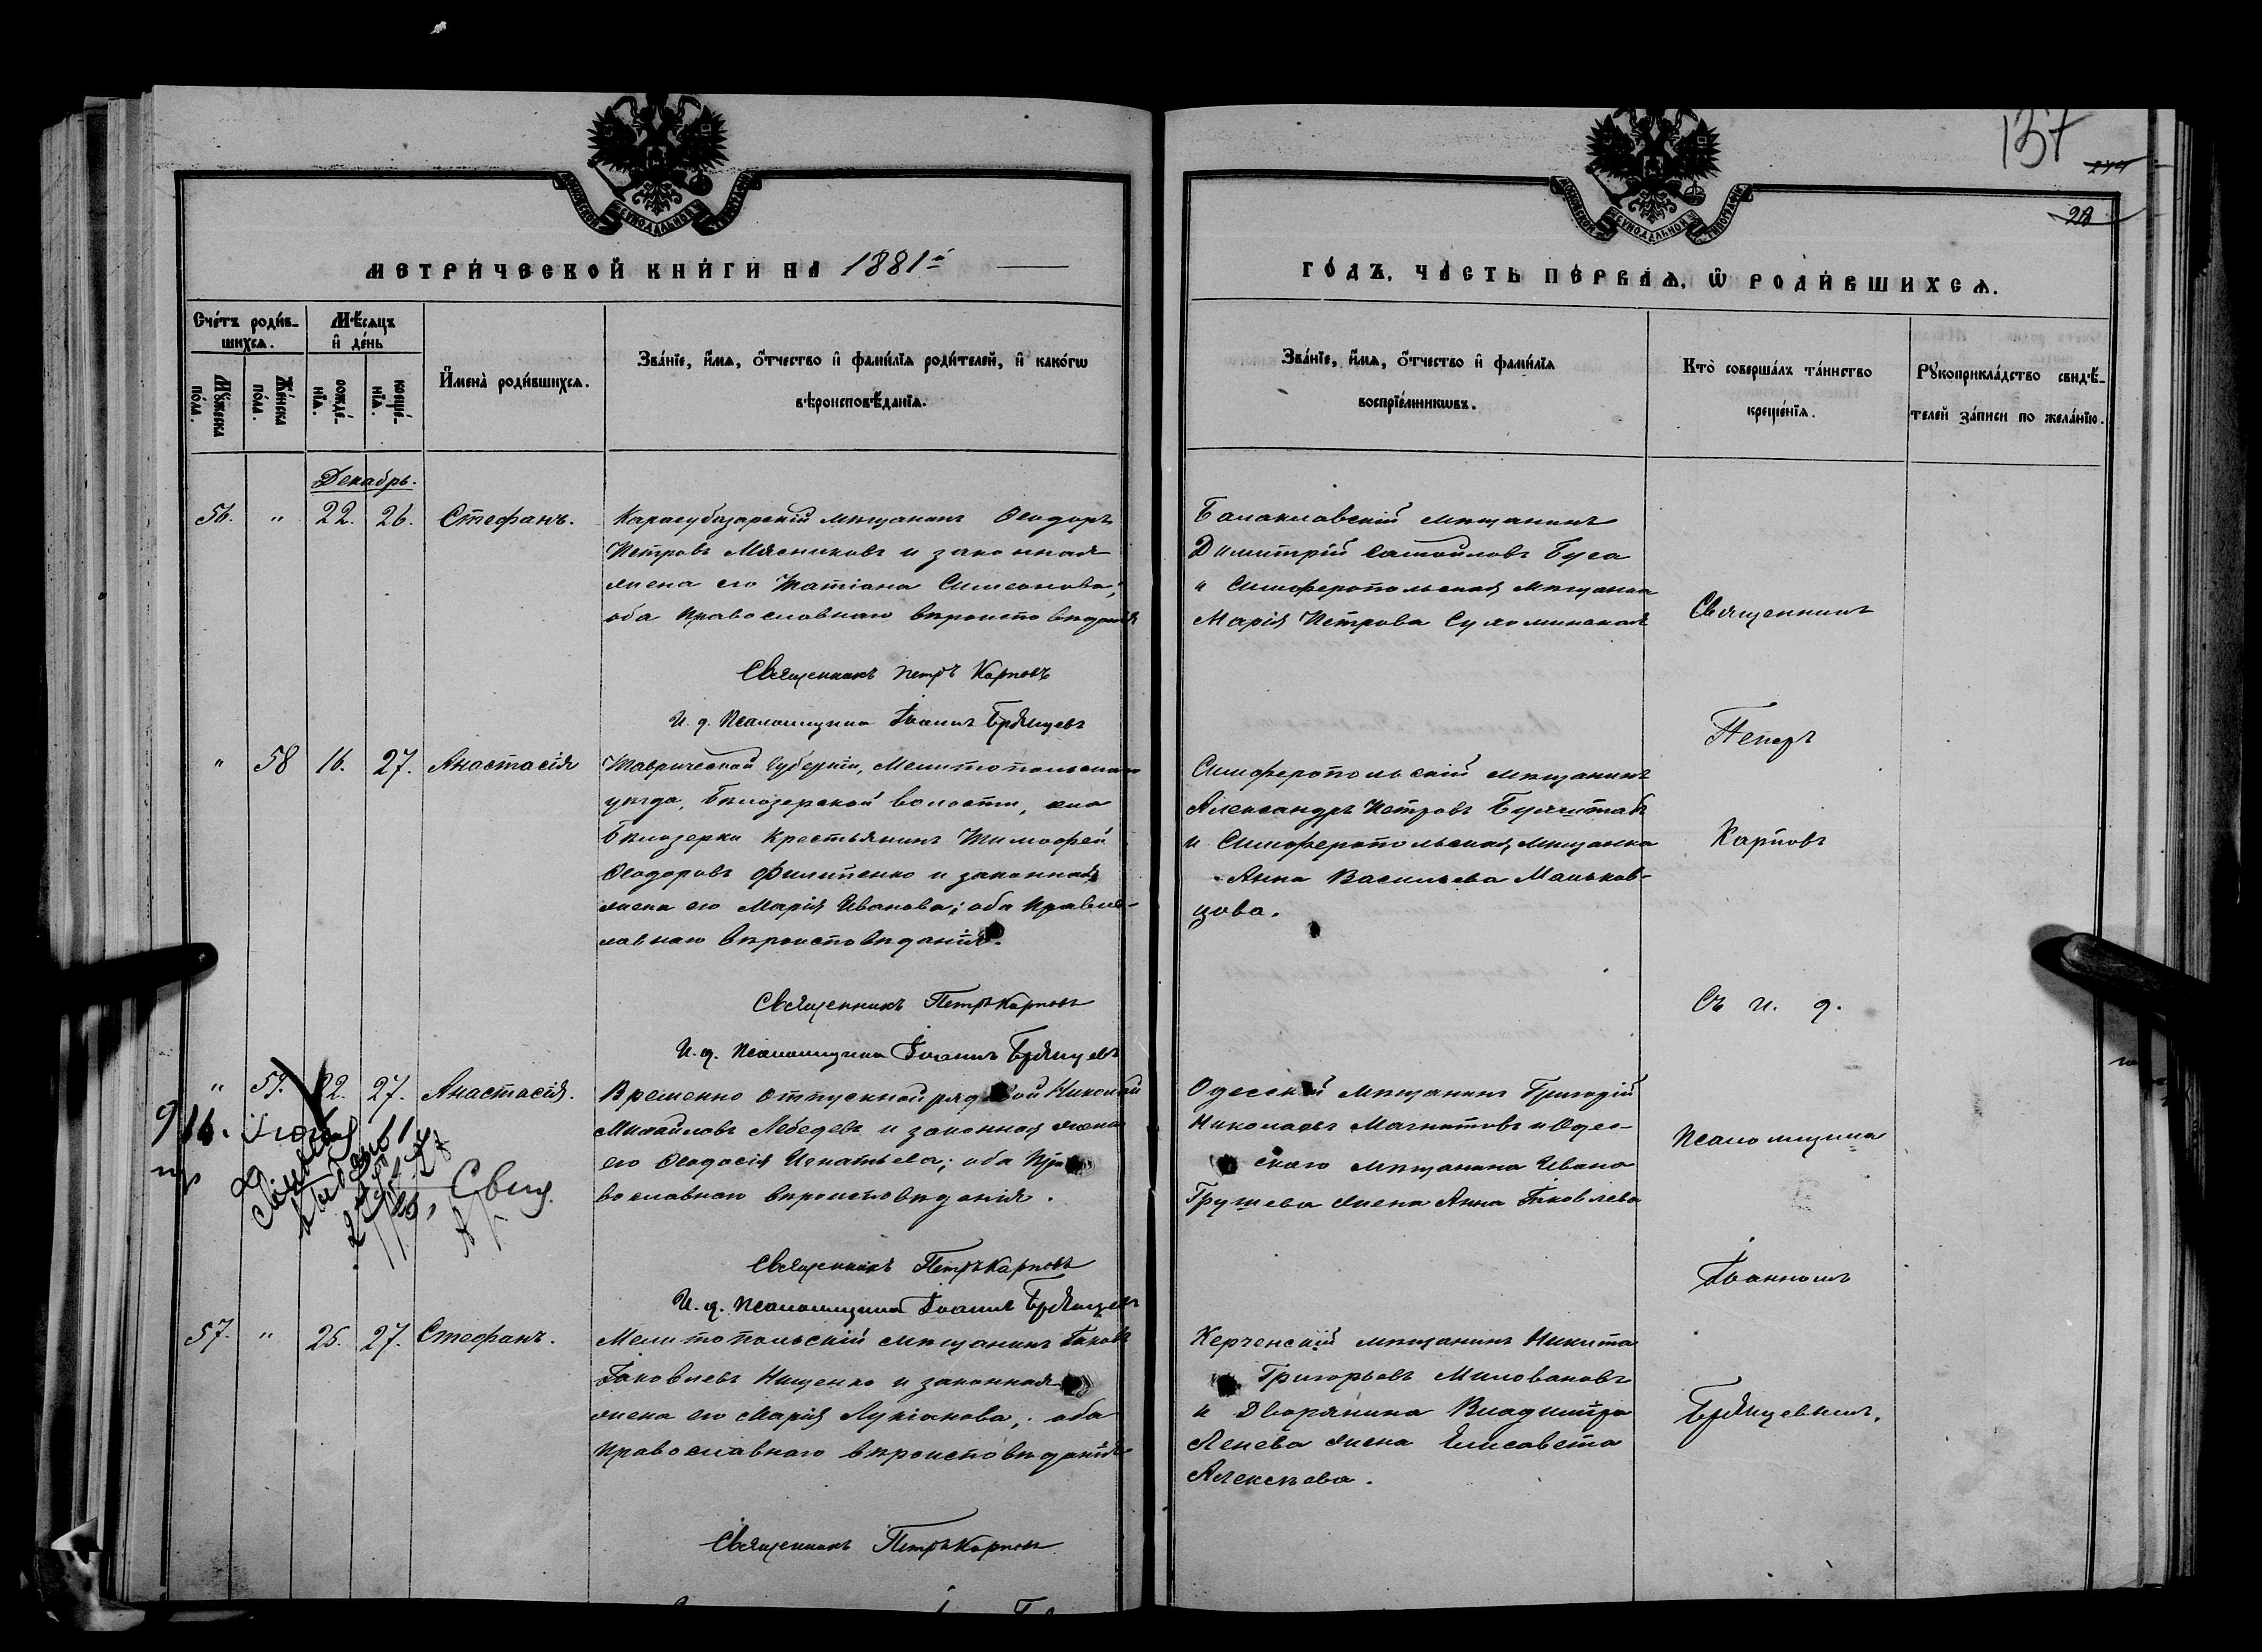 137
28
МОСКОВСКОЙ СѴНОДАЛЬНОЙ ТИПОГРАФІИ
МОСКОВСКОЙ СѴНОДАЛЬНОЙ ТИПОГРАФІИ
МЕТРИ́ЧЕСКОЙ КНИ́ГИ НА 1881й
ГО́ДЪ, ЧА́СТЬ ПЕ́РВАЯ, Ѡ РОДИ́ВШИХСЯ.
Сче́тъ роди́в-
шихся.
Мꙋ́жеска по́ла.
Же́нска по́ла.
Мѣ́сяцъ и҆ де́нь
рожде́-нїя.
креще́-нїя.
И҆мена̀ роди́вшихся.
Зва́нїе, и҆́мя, ѻ҆́тчество и҆ фами́лїя роди́телей, и҆ како́гѡ
вѣроисповѣ́данїя.
Зва́нїе, и҆́мя, ѻ҆́тчество и҆ фами́лїя
воспрїе́мникѡвъ.
Кто̀ соверша́лъ та́инство
креще́нїя.
Рꙋкоприкла́дство свидѣ́-
телей за́писи по жела́нїю.
Декабрь.
56. " 22. 26. Стефанъ.
Карасубазарскій мѣщанинъ Ѳеодоръ
Петровъ Мясниковъ и законная
жена его Татіана Симеонова;
оба Православнаго вѣроисповѣданія
Священникъ Петръ Карповъ
И. д. Псаломщика Іоаннъ Брянцевъ
Балаклавскій мѣщанинъ
Димитрій Самойловъ Буса
и Симферопольская мѣщанка
Марія Петрова Сухоминская
" 58 16. 27. Анастасія
Таврической Губерніи, Мелитопольскаго
уѣзда, Бѣлозерской волости, села
Бѣлозерки Крестьянинъ Тимоѳей
Ѳеодоровъ Филипенко и законная
жена его Марія Иванова; оба Правос-
лавнаго вѣроисповѣданія.
Священникъ Петръ Карповъ
И. д. Псаломщика Іоаннъ Брянцевъ
Симферопольскій мѣщанинъ
Александръ Петровъ
и Симферопольская мѣщанка
Анна Васильева Маньков-
цова.
" 59. 22. 27. Анастасія.
Временно отпускной рядовой Николай
Михайловъ Лебедевъ и законная жена
его Ѳеодосія Игнатьева; оба Пра
вославнаго вѣроисповѣданія.
Священникъ Петръ Карповъ
И. д. Псаломщика Іоаннъ Брянцевъ
Одесскій мѣщанинъ Григорій
Николаевъ Магнитовъ и Одес-
скаго мѣщанина Ивана
Грушева жена Анна Іаковлева
916.
Свид.
57. " 25. 27. Стефанъ.
Мелитопольскій мѣщанинъ Іаковъ
Іаковлевъ Нищенко и законная
жена его Марія Лукіанова; оба
Православнаго вѣроисповѣданія
Священникъ Петръ Карповъ
Керченскій мѣщанинъ Никита
Григорьевъ Миловановъ
и Дворянина Владиміра
Ленева жена Елисавета
Алексѣева.
Священникъ
Петръ
Карповъ
Съ и. д.
Псаломщика
Іоанномъ
Брянцевымъ.